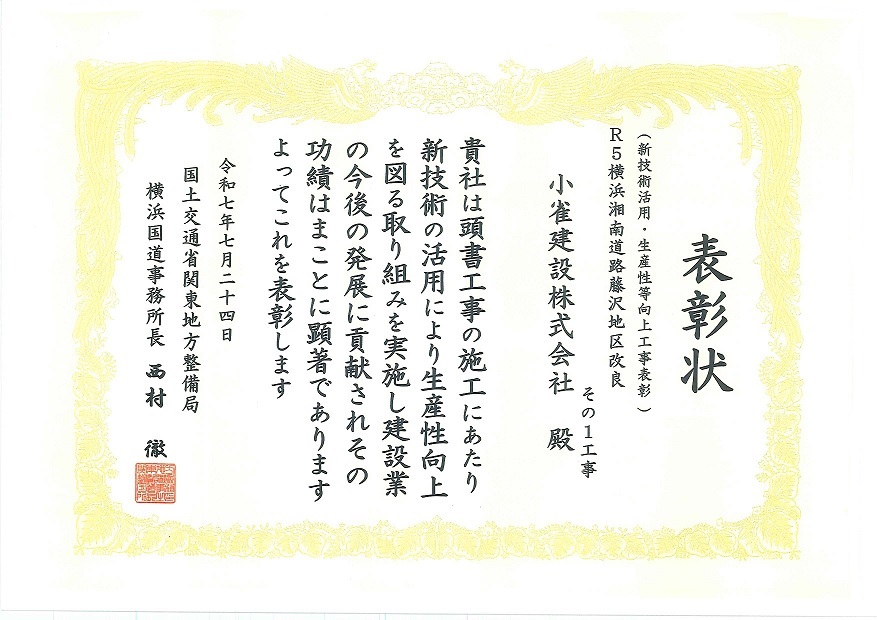 表彰状
（新技術活用・生産性等向上工事表彰）
R5横浜湘南道路藤沢地区改良
その1工事
小雀建設株式会社 殿
貴社は頭書工事の施工にあたり
新技術の活用により生産性向上
を図る取り組みを実施し建設業
の今後の発展に貢献されその
功績はまことに顕著であります
よってこれを表彰します
令和七年七月二十四日
国土交通省関東地方整備局
横浜国道事務所長 西村 徹